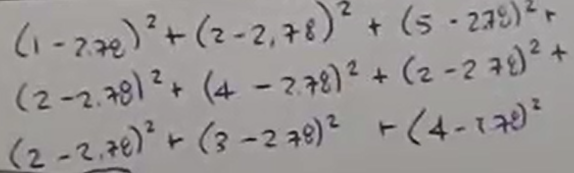 (1 - 2.78)² + (2 - 2,78)² + (5 - 2.78)² +
(2 - 2.78)² + (4 - 2.78)² + (2 - 2 78)² +
(2 - 2.78)² + (3 - 2 78)² + (4 - 2.78)²